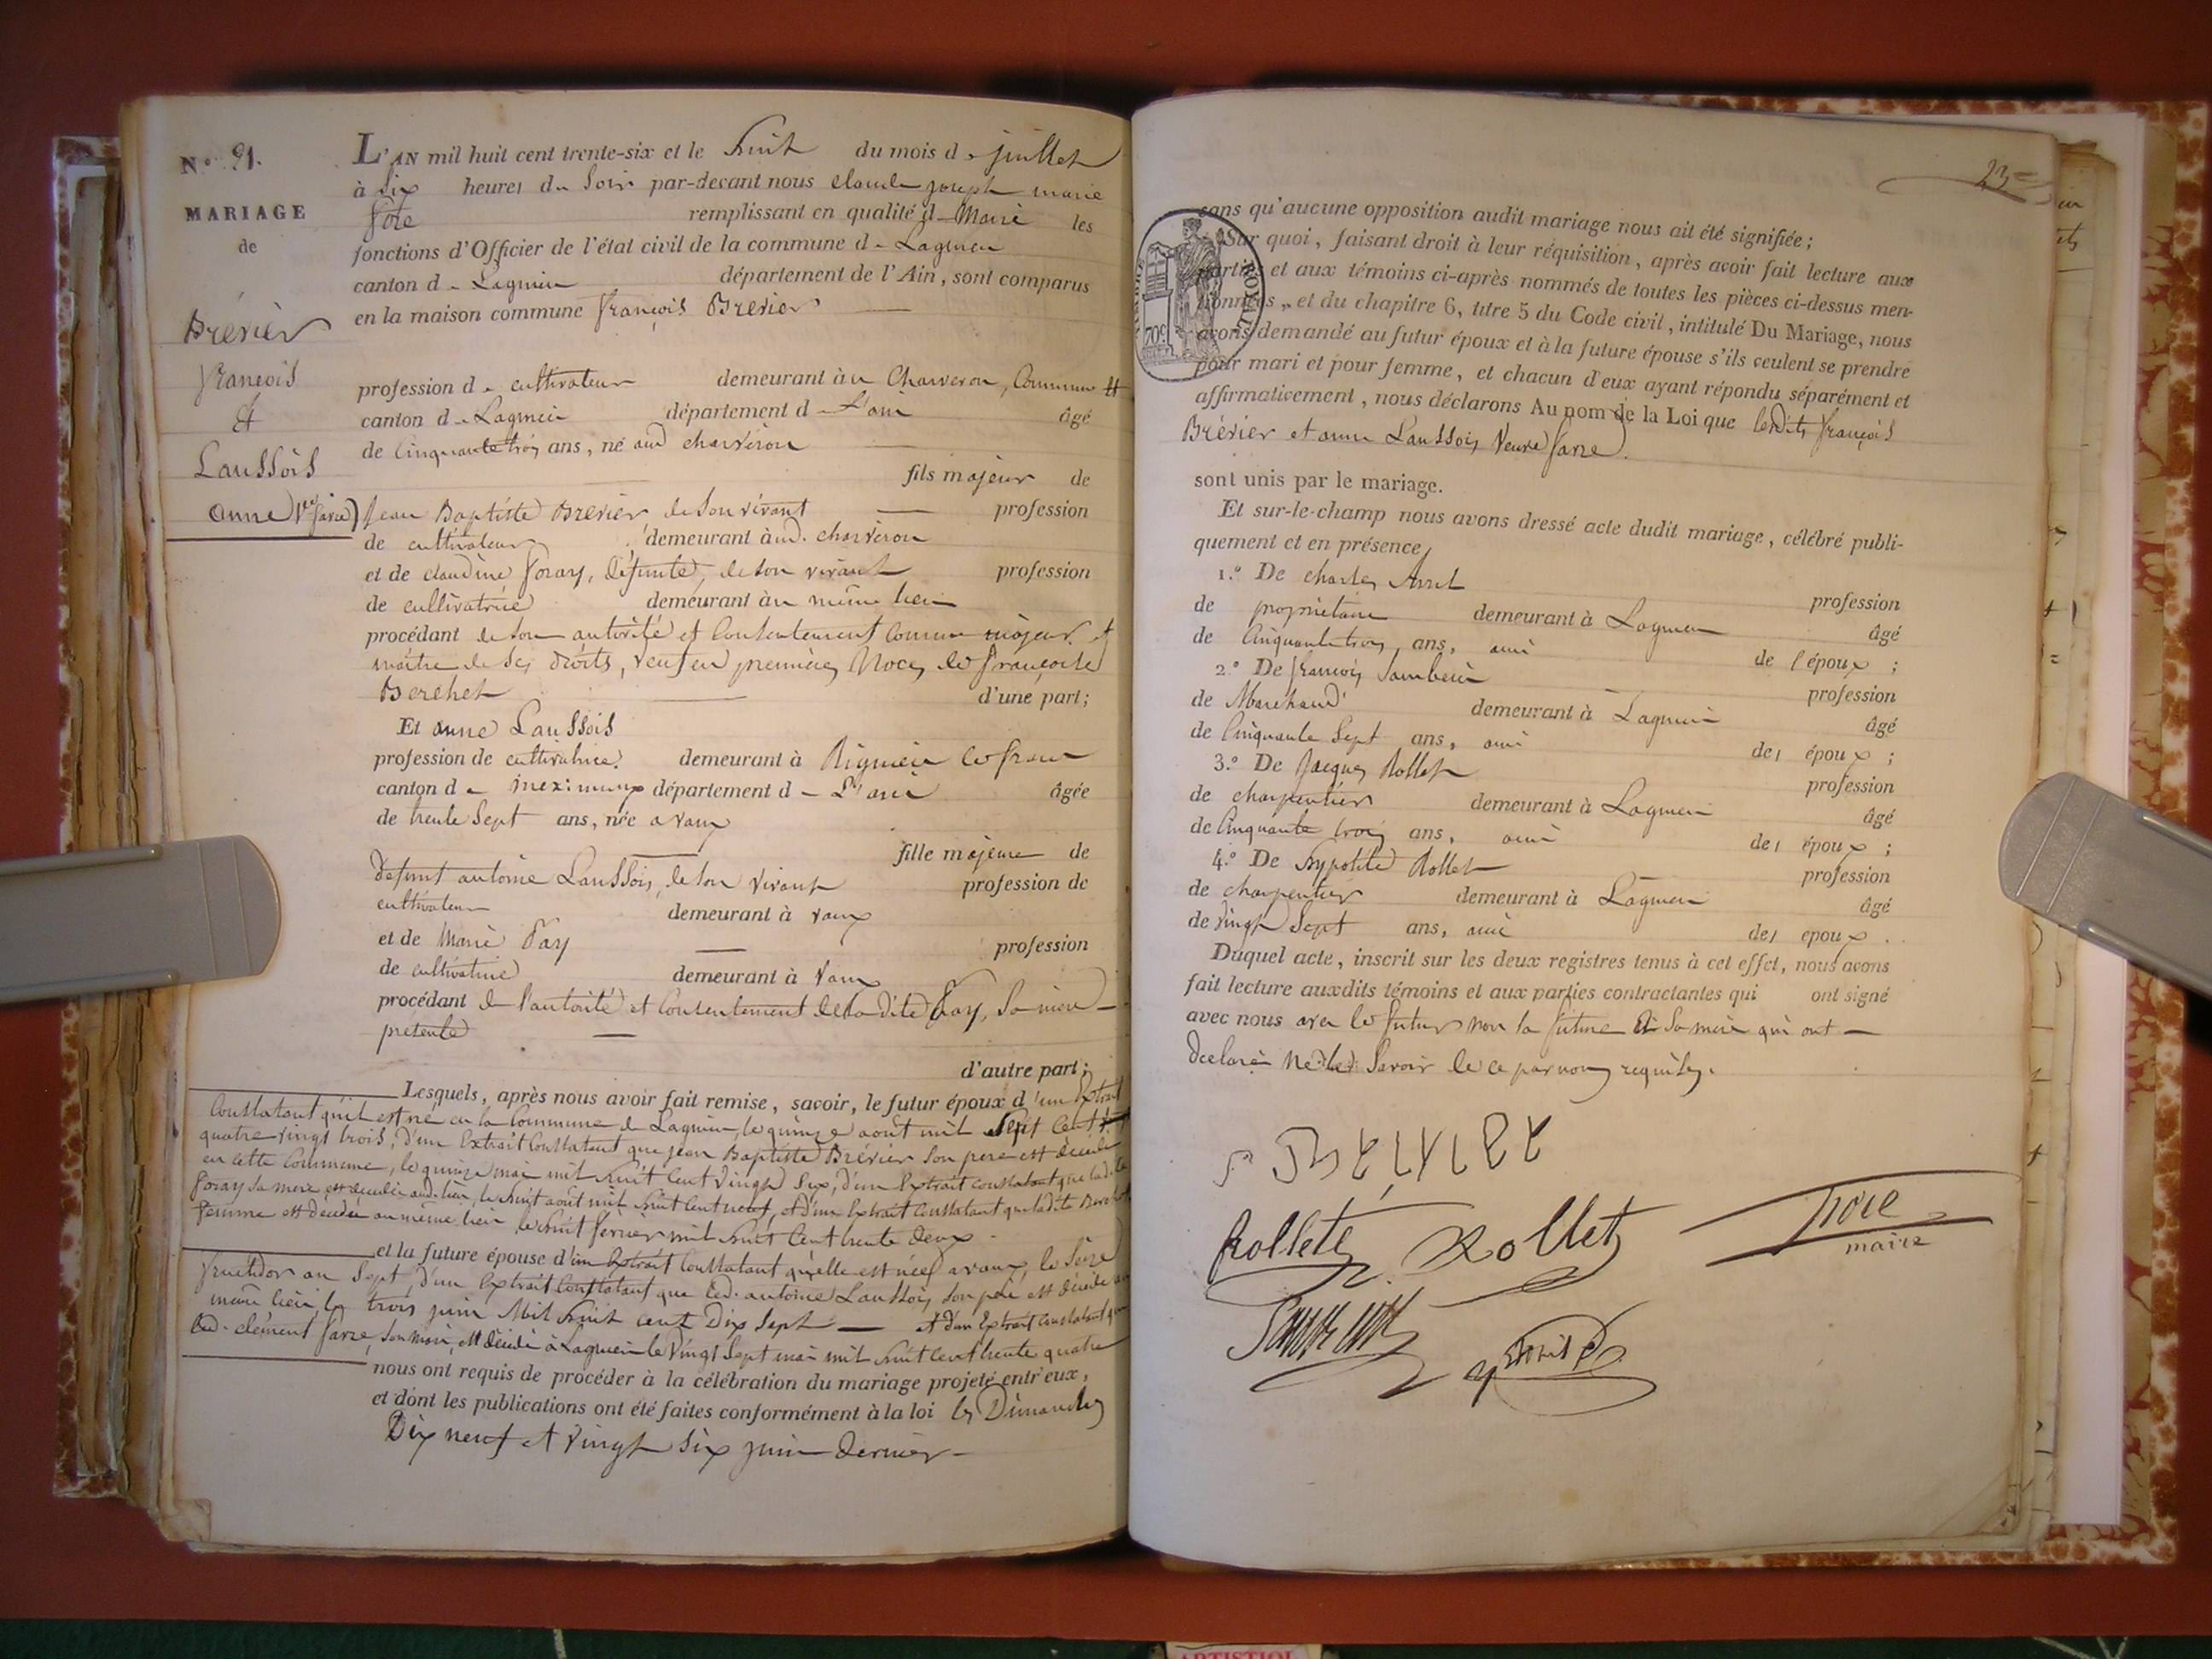 N.° 21.
MARIAGE
de
Brévier
François
&
Laussois
Anne Ve farre
L'AN mil huit cent trente-six et le huit du mois de juillet
à six heures du soir par-devant nous Claude joseph marie
remplissant en qualité de Maire les
fonctions d'Officier de l'état civil de la commune de Lagnieu
canton de Lagnieu département de l'Ain, sont comparus
en la maison commune françois Brévier
profession de cultivateur demeurant au Charveron, Commune &
canton de Lagnieu département de L'ain âgé
de Cinquante trois ans, né aud charvéron
fils majeur de
Jean Baptiste Brévier de son vivant profession
de cultivateur demeurant aud. charvéron
et de claudine foray, défunte, de son vivant profession
de cultivatrice demeurant au même lieu
procédant de son autorité et Consentement Comme majeur et
maître de ses droits, veuf en premières Noces de françoise
Berchet d'une part;
Et anne Laussois
profession de cultivatrice demeurant à Rignieu le franc
canton de meximieux département de L'ain âgée
de trente Sept ans, née a vaux
fille majeure de
defunt antoine Laussois, de son vivant profession de
cultivateur demeurant à vaux
et de Marie profession
de cultivatrice demeurant à vaux
procédant de l'autorité et Consentement de la dite sa mère
présente
d'autre part;
Lesquels, après nous avoir fait remise, savoir, le futur époux d'un Extrait
Constatant qu'il est né en la Commune de Lagnieu, le quinze août mil Sept Cent
quatre vingt trois, d'un Extrait Constatant que jean Baptiste Brévier son père est décédé
en cette Commune, le quinze mai mil huit Cent vingt Six, d'un Extrait constatant que lad. Cl.
foray sa mère est décédée aud. lieu, le huit août mil huit Cent neuf, et d'un Extrait Constatant que ladite Berchet
femme est décédée au même lieu le huit février mil huit Cent trente deux
et la future épouse d'un Extrait Constatant qu'elle est née à vaux, le Seize
fructidor an Sept, d'un Extrait Constatant que led. antoine Laussois, son père est décédé au
même lieu, le trois juin Mil huit cent Dix Sept — et d'un Extrait Constatant que
led. clément farre, son mari, est décédé à Lagnieu le vingt Sept mai mil huit Cent trente quatre
nous ont requis de procéder à la célébration du mariage projeté entr'eux,
et dont les publications ont été faites conformément à la loi les Dimanches
Dix neuf et vingt Six juin dernier
23
sans qu'aucune opposition audit mariage nous ait été signifiée;
Sur quoi, faisant droit à leur réquisition, après avoir fait lecture aux
parties et aux témoins ci-après nommés de toutes les pièces ci-dessus men-
tionnées, et du chapitre 6, titre 5 du Code civil, intitulé Du Mariage, nous
avons demandé au futur époux et à la future épouse s'ils veulent se prendre
pour mari et pour femme, et chacun d'eux ayant répondu séparément et
affirmativement, nous déclarons Au nom de la Loi que lesdits françois
Brévier et anne Laussois veuve farre
sont unis par le mariage.
Et sur-le-champ nous avons dressé acte dudit mariage, célébré publi-
quement et en présence
1.° De charles profession
de propriétaire demeurant à Lagnieu âgé
de Cinquante trois ans, ami de l'époux;
2.° De françois profession
de Marchand demeurant à Lagnieu âgé
de Cinquante Sept ans, ami des époux;
3.° De Jacques Rollet profession
de charpentier demeurant à Lagnieu âgé
de Cinquante trois ans, ami des époux;
4.° De hypolite Rollet profession
de charpentier demeurant à Lagnieu âgé
de vingt Sept ans, ami des époux.
Duquel acte, inscrit sur les deux registres tenus à cet effet, nous avons
fait lecture auxdits témoins et aux parties contractantes qui ont signé
avec nous avec le futur non la future et sa mère qui ont
déclaré ne le savoir de ce par nous requises.
ROYAL
70c
Rollet
Rollet
maire